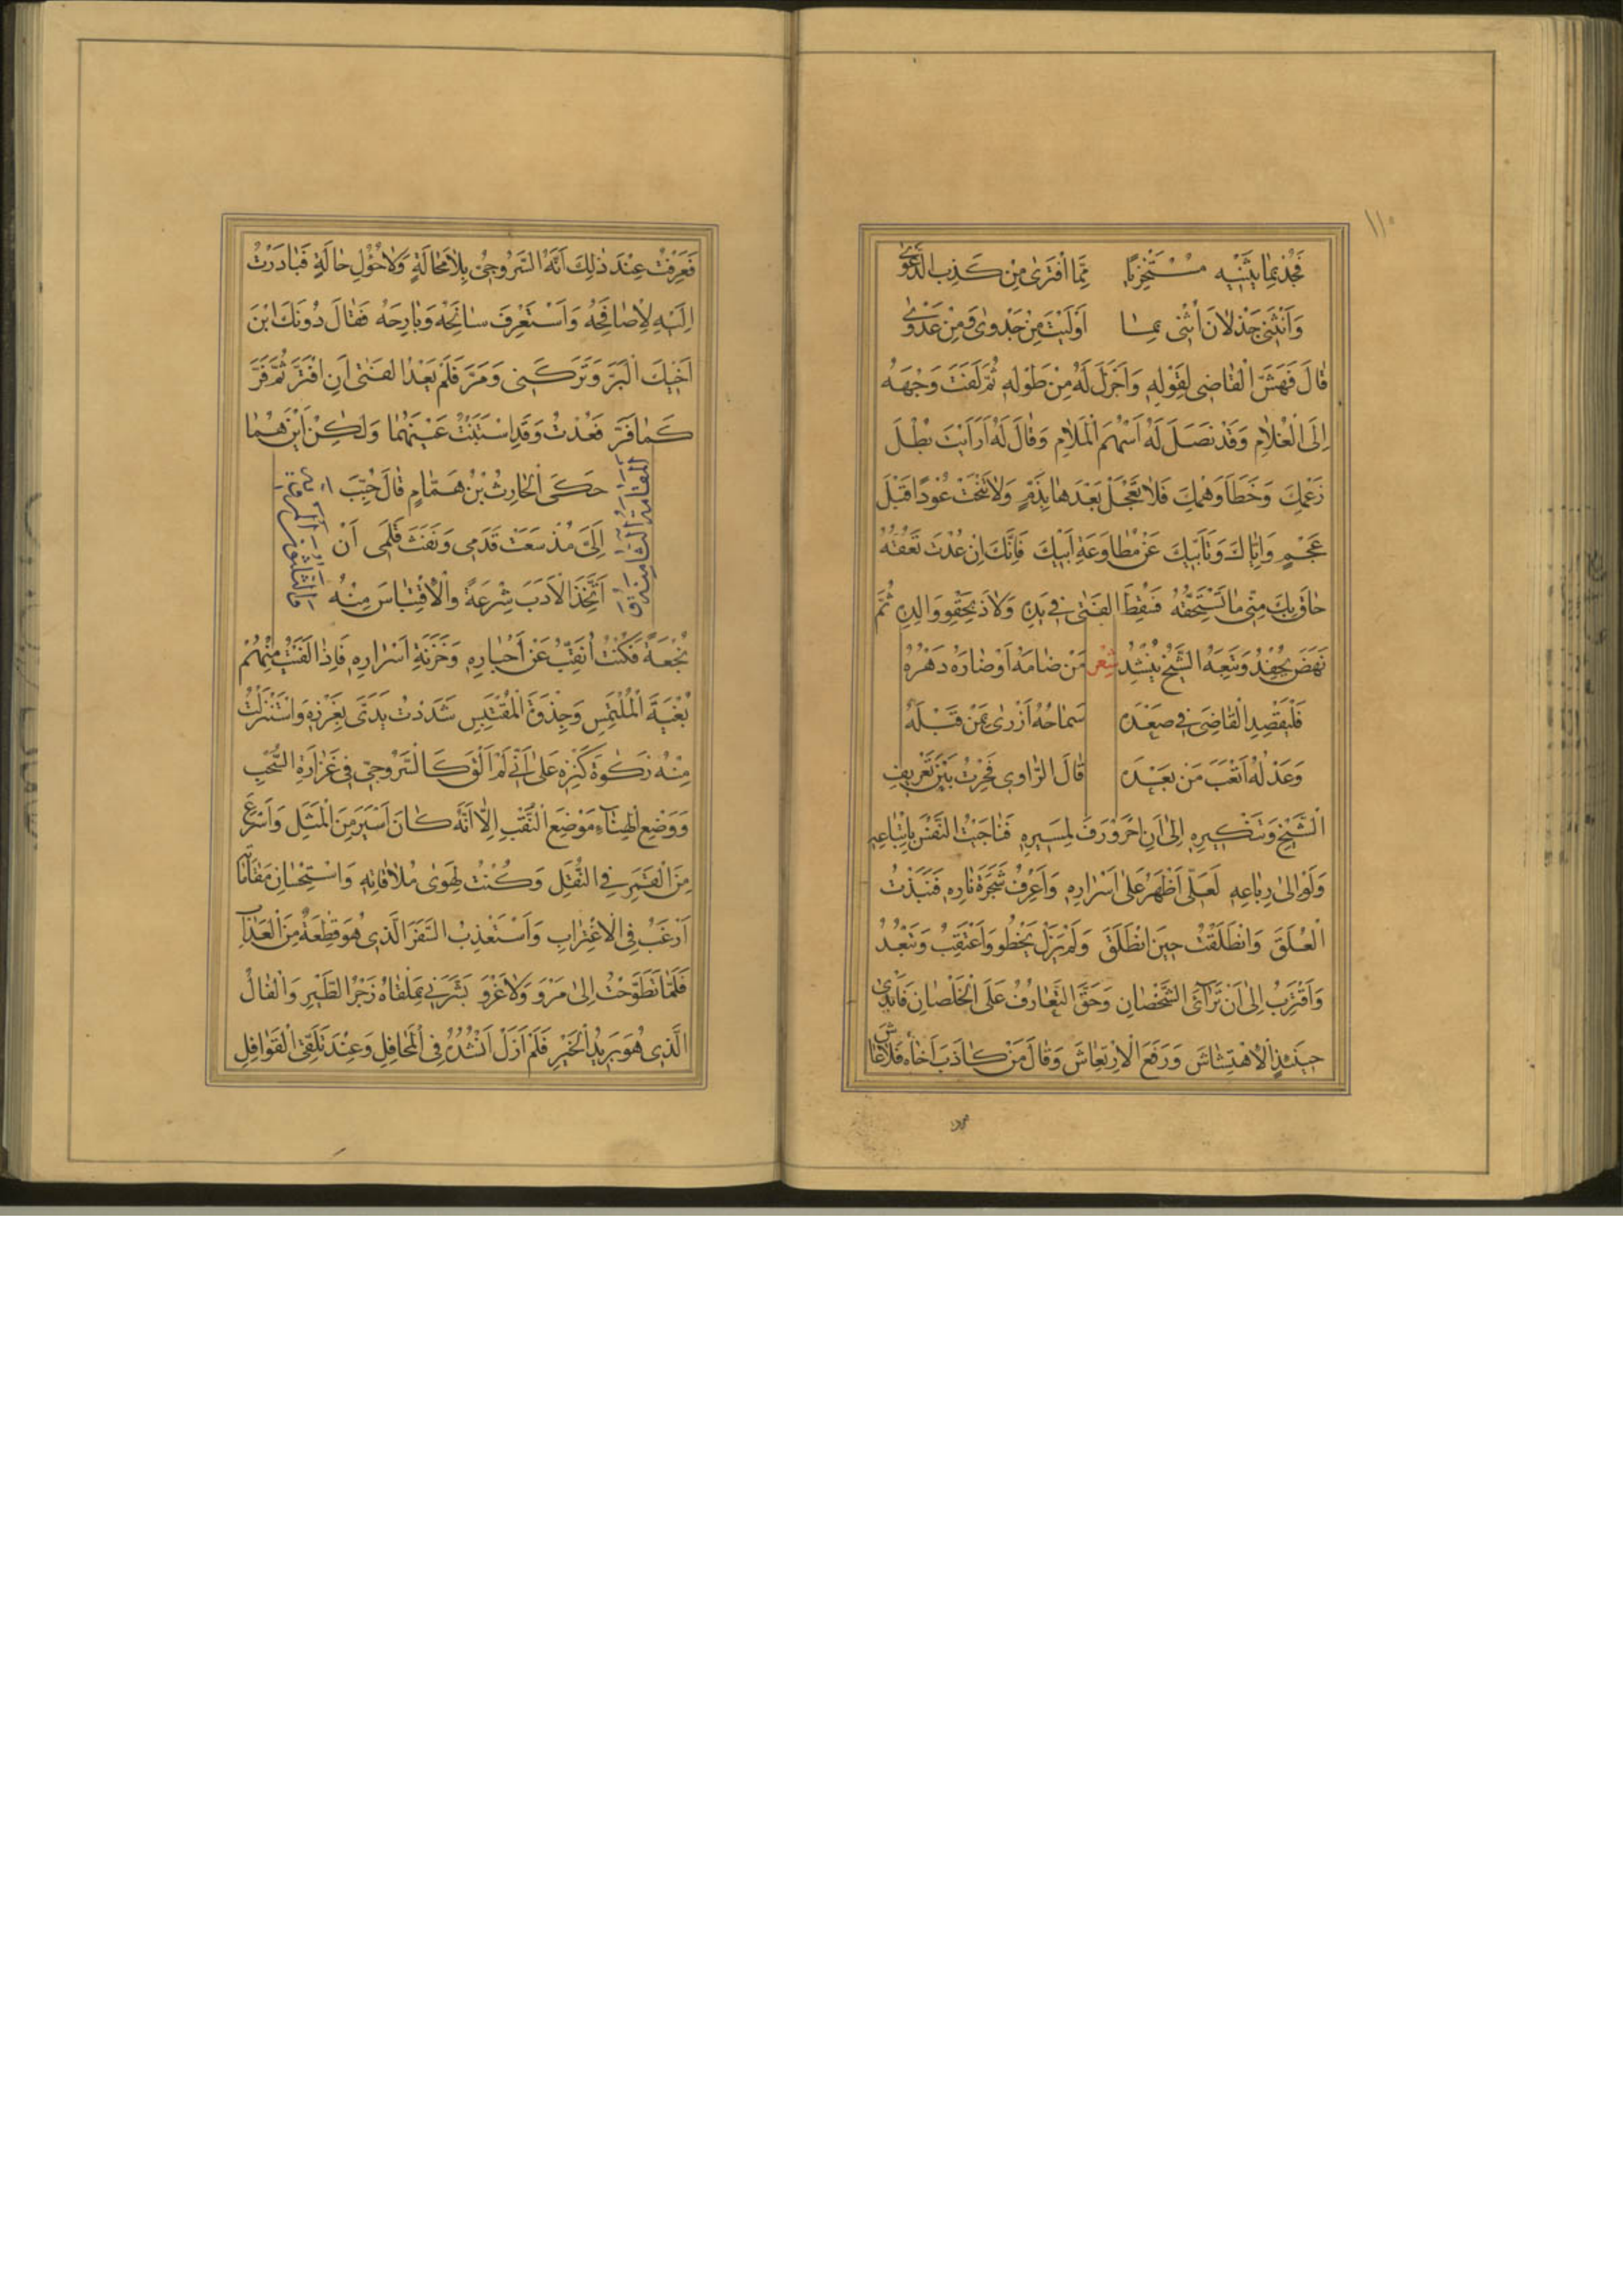 ١١٠
فَجُدْ بِمَا يَثْنِيهِ مُسْتَخْزِيًا مِمَّا افْتَرَى مِنْ كَذِبِ الدَّعْوَى
وَأَنْثَنِي جَذْلَانَ أُثْنِي بِمَا أَوْلَيْتَ مِنْ جَدْوَى وَمِنْ عَدْوَى
قَالَ فَهَشَّ الْقَاضِي لِقَوْلِهِ وَأَجْزَلَ لَهُ مِنْ طَوْلِهِ ثُمَّ لَفَتَ وَجْهَهُ
إِلَى الْغُلَامِ وَقَدْ نَصَلَ لَهُ أَسْهُمَ الْمَلَامِ وَقَالَ لَهُ أَرَأَيْتَ بُطْلَ
زَعْمِكَ وَخَطَأَ وَهْمِكَ فَلَا تَعْجَلْ بَعْدَهَا بِذَمٍّ وَلَا تَنْحَتْ عُودًا قَبْلَ
عَجْمٍ وَإِيَّاكَ وَتَأَبِّيكَ عَنْ مُطَاوَعَةِ أَبِيكَ فَإِنَّكَ إِنْ عُدْتَ تَعُقُّهُ
حَاقَ بِكَ مِنِّي مَا تَسْتَحِقُّهُ فَسُقِطَ الْفَتَى فِي يَدِهِ وَلَاذَ بِحَقْوِ وَالِدِهِ ثُمَّ
نَهَضَ يُحْفِدُ وَتَبِعَهُ الشَّيْخُ يُنْشِدُ شِعْر مَنْ ضَامَهُ أَوْ ضَارَهُ دَهْرُهُ
فَلْيَقْصِدِ الْقَاضِيَ فِي صَعْدَهْ سَمَاحُهُ أَزْرَى بِمَنْ قَبْلَهُ
وَعَدْلُهُ أَتْعَبَ مَنْ بَعْدَهْ قَالَ الرَّاوِي فَحِرْتُ بَيْنَ تَعْرِيفِ
الشَّيْخِ وَتَنْكِيرِهِ إِلَى أَنِ احْرَوْرَفَ لِمَسِيرِهِ فَنَاجَيْتُ النَّفْسَ بِاتِّبَاعِهِ
وَلَوْ إِلَى رِبَاعِهِ لَعَلِّي أَظْهَرُ عَلَى أَسْرَارِهِ وَأَعْرِفُ شَجَرَةَ نَارِهِ فَنَبَذْتُ
الْعُلَقَ وَانْطَلَقْتُ حِينَ انْطَلَقَ وَلَمْ يَزَلْ يَخْطُو وَأَعْتَقِبُ وَيَبْعُدُ
وَأَقْتَرِبُ إِلَى أَنْ تَرَاءَى الشَّخْصَانِ وَحَقَّ التَّعَارُفُ عَلَى الْخُلْصَانِ فَأَبْدَى
حِينَئِذٍ الِاهْتِشَاشَ وَرَفَعَ الِارْتِعَاشَ وَقَالَ مَنْ كَاذَبَ أَخَاهُ فَلَا عَاشَ
فَعَرَفْتُ عِنْدَ ذَلِكَ أَنَّهُ السَّرُوجِيُّ بِلَا مَحَالَةٍ وَلَا حُؤُولِ حَالَةٍ فَبَادَرْتُ
إِلَيْهِ لِأُصَافِحَهُ وَأَسْتَعْرِفَ سَانِحَهُ وَبَارِحَهُ فَقَالَ دُونَكَ ابْنَ
أَخِيكَ الْبَرَّ وَتَرَكَنِي وَمَرَّ فَلَمْ يَعْدُ الْفَتَى أَنِ افْتَرَّ ثُمَّ فَرَّ
كَمَا فَرَّ فَعُدْتُ وَقَدِ اسْتَبَنْتُ عَيْنَهُمَا وَلَكِنْ أَيْنَ هُمَا
المقامة الثامنة و
الثلثون المروية
حَكَى الْحَارِثُ بْنُ هَمَّامٍ قَالَ حُبِّبَ
إِلَيَّ مُذْ سَعَتْ قَدَمِي وَنَفَثَ قَلَمِي أَنْ
أَتَّخِذَ الْأَدَبَ شِرْعَةً وَالِاقْتِبَاسَ مِنْهُ
نُجْعَةً فَكُنْتُ أُنَقِّبُ عَنْ أَخْبَارِهِ وَخَزَنَةِ أَسْرَارِهِ فَإِذَا أَلْفَيْتُ مِنْهُمْ
بُغْيَةَ الْمُلْتَمِسِ وَجِذْوَةَ الْمُقْتَبِسِ شَدَدْتُ يَدَيَّ بِغَرْزِهِ وَاسْتَنْزَلْتُ
مِنْهُ زَكَوةَ كَنْزِهِ عَلَى أَنِّي لَمْ أَلْقَ كَالسَّرُوجِيِّ فِي غَزَارَةِ السُّحْبِ
وَوَضْعِ الْهِنَاءِ مَوْضِعَ النُّقْبِ إِلَّا أَنَّهُ كَانَ أَسْيَرَ مِنَ الْمَثَلِ وَأَسْرَعَ
مِنَ الْقَمَرِ فِي النُّقَلِ وَكُنْتُ لِهَوَى مُلَاقَاتِهِ وَاسْتِحْسَانِ مَقَامَاتِهِ
أَرْغَبُ فِي الِاغْتِرَابِ وَأَسْتَعْذِبُ السَّفَرَ الَّذِي هُوَ قِطْعَةٌ مِنَ الْعَذَابِ
فَلَمَّا تَطَوَّحْتُ إِلَى مَرْوَ وَلَا غَرْوَ بَشَّرَنِي بِمَلْقَاهُ زَجْرُ الطَّيْرِ وَالْفَالُ
الَّذِي هُوَ بَرِيدُ الْخَيْرِ فَلَمْ أَزَلْ أَنْشُدُهُ فِي الْمَحَافِلِ وَعِنْدَ تَلَقِّي الْقَوَافِلِ